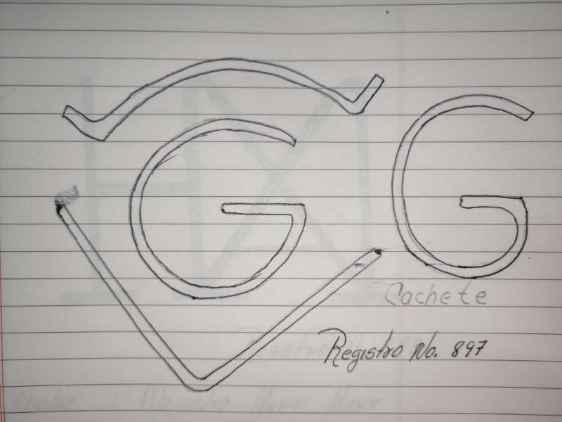 G G
Cachete
Registro No. 897